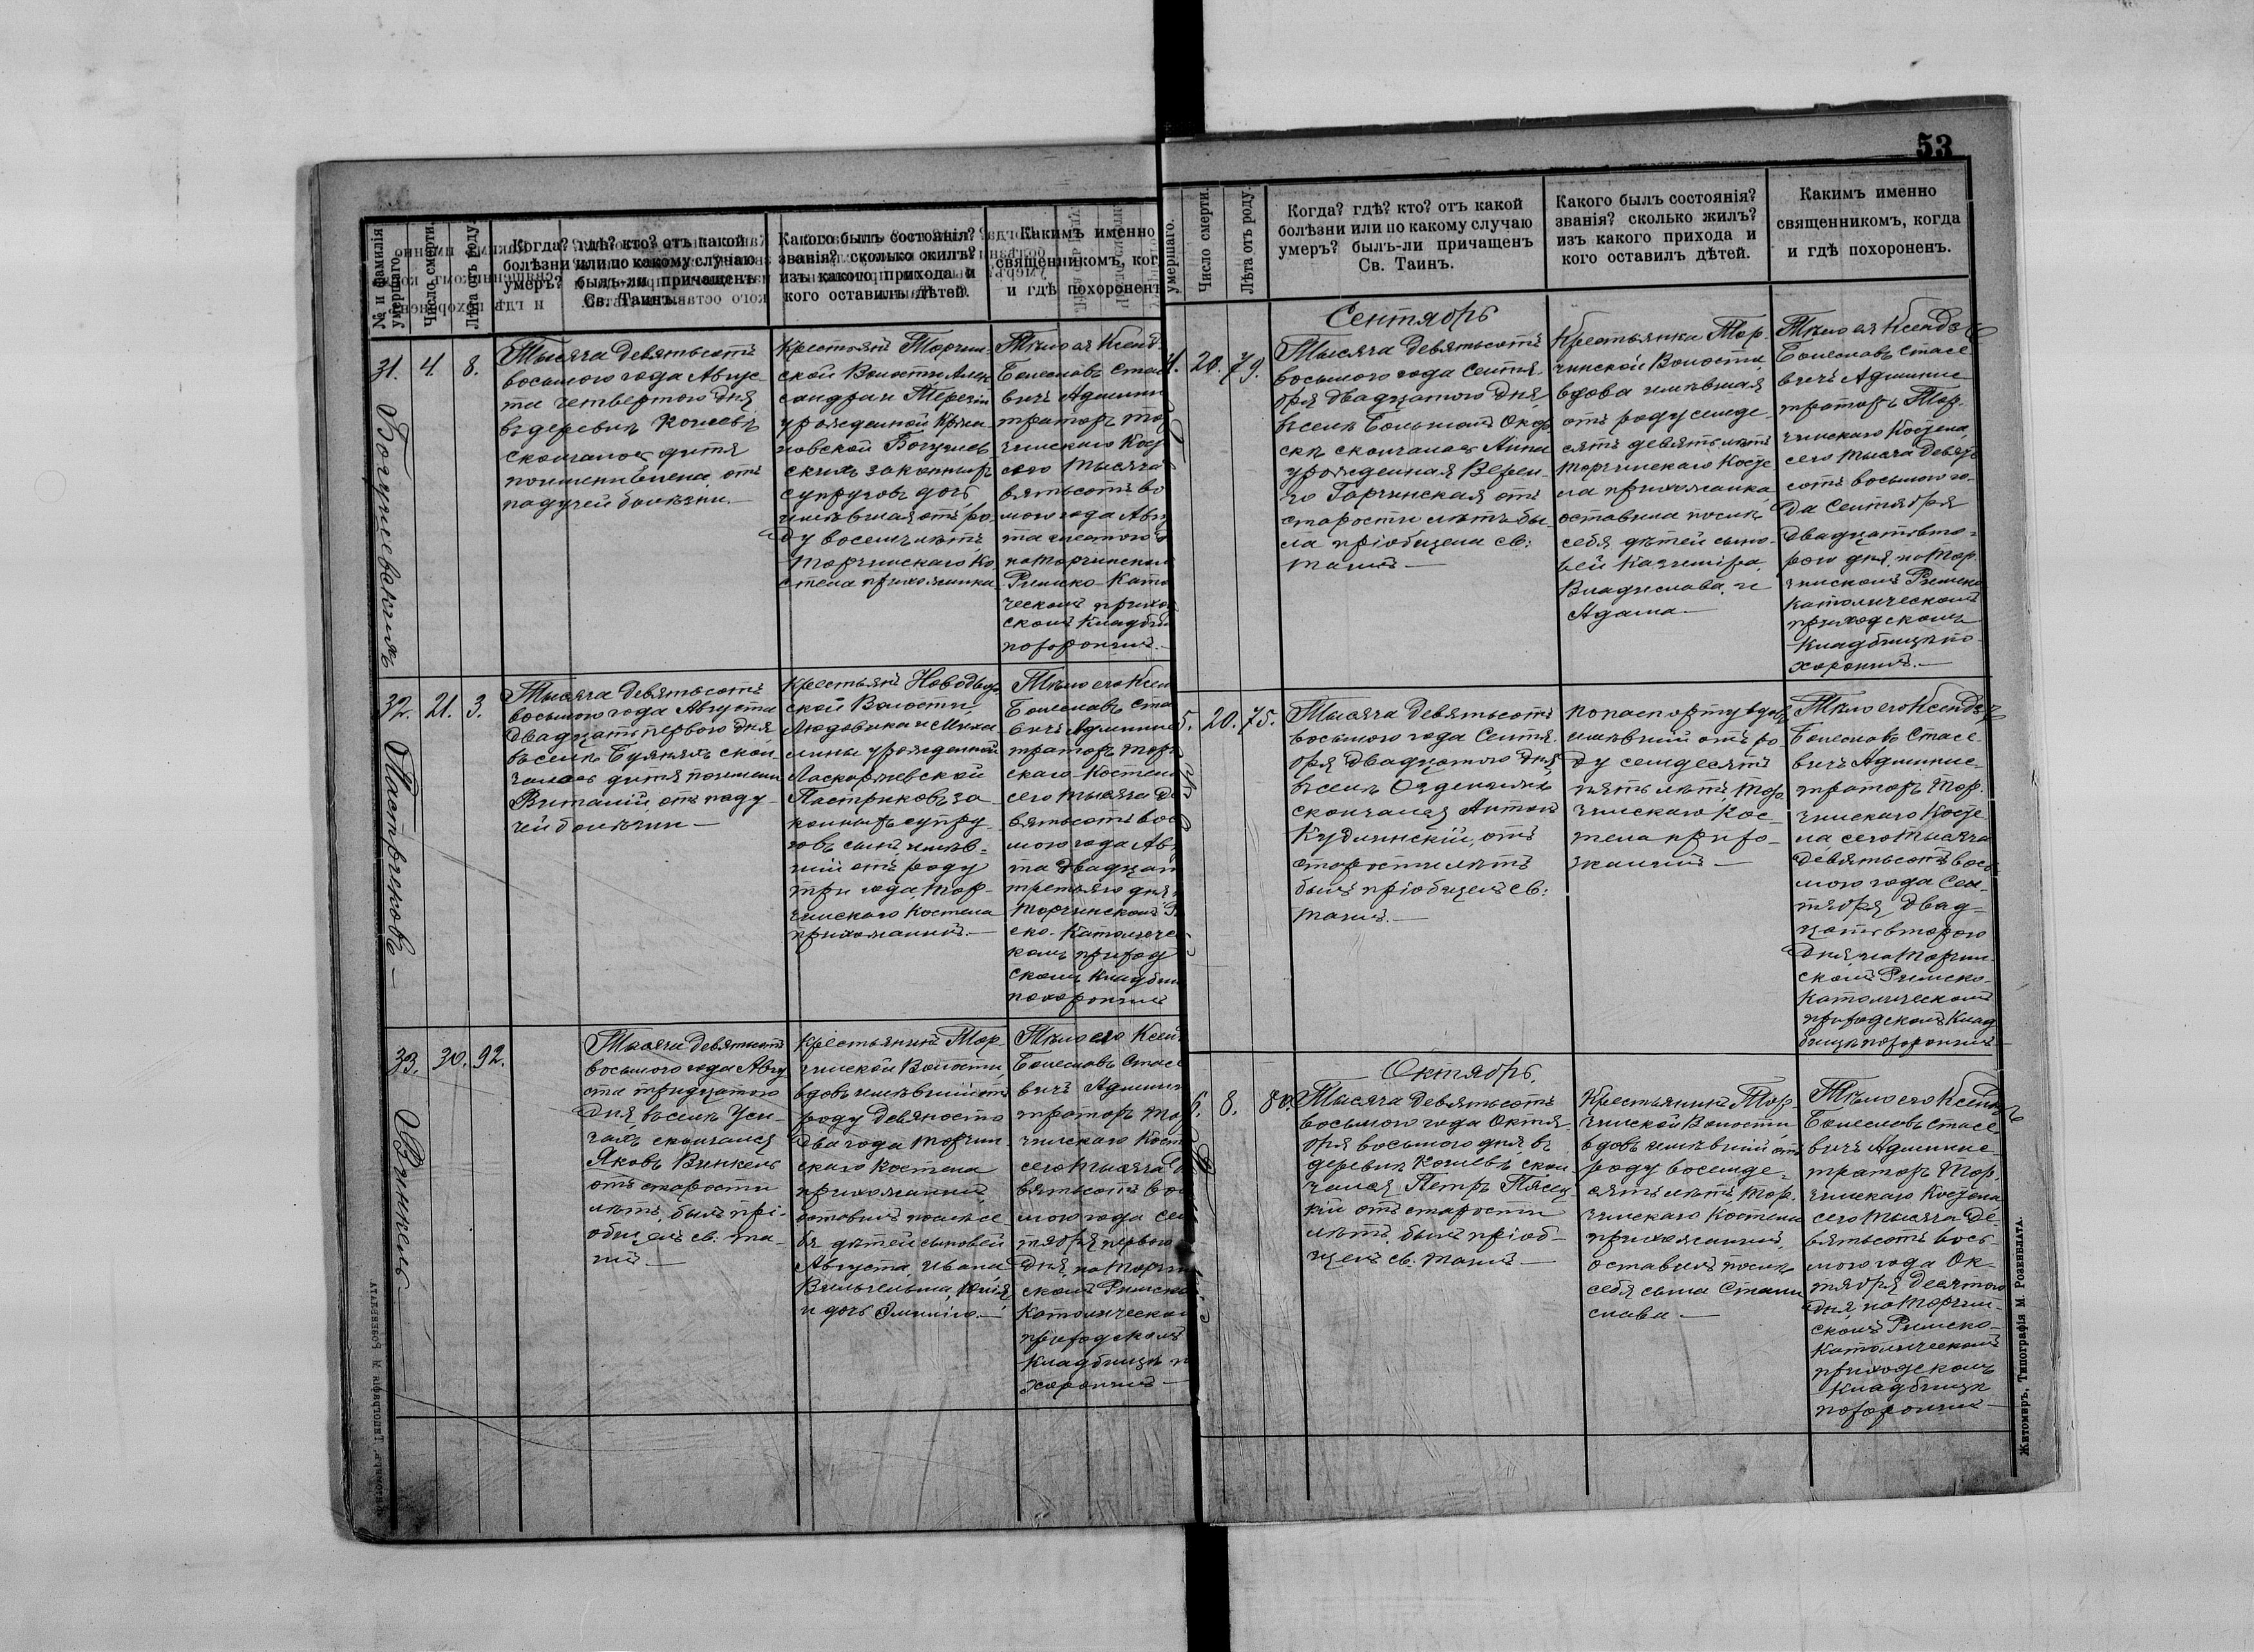 № и фамилія умершаго.
Число смерти.
Лѣта отъ роду.
Когда? гдѣ? кто? отъ какой
болѣзни или по какому случаю
умеръ? былъ-ли причащенъ
Св. Таинъ.
Какого былъ состоянія?
званія? сколько жилъ?
изъ какого прихода и
кого оставилъ дѣтей.
Какимъ именно
священникомъ, ког
и гдѣ похороненъ
31. 4. 8.
Тысяча девятьсотъ
восьмого года Авгус-
та четвертого дня
въ деревнѣ
скончалось дитя
по имени отъ
падучей болѣзни.—
Крестьянъ Торчин-
ской Волости Алек
сандра и
урожденной
законныхъ
супруговъ дочь
имѣвшая отъ ро-
ду восемь лѣтъ
Торчинскаго Ко
стела прихожанка
Тѣло ея Ксенд
Болеславъ Стас
вичъ Админи
траторъ То
чинскаго Кос
сего тысяча
вятьсотъ во
мого года Авг
та шестого
на Торчинском
Римско-Като
ческомъ прихо
скомъ Кладби
похоронилъ.—
32. 21. 3.
Пастриковъ—
Тысяча девятьсотъ
восьмого года Августа
двадцать первого дня
въ селѣ Буянахъ скон
чалось дитя по имени
Виталій отъ паду-
чей болѣзни—
Крестьянъ Новодвор
ской Волости,
Людовика и Миха
лины урожденной
Ласкаржевской
Пастриковъ за-
конныхъ супру-
говъ сынъ имѣв-
шій отъ роду
три года, Тор-
чинскаго Костела
прихожанинъ.—
Тѣло его Ксен
Болеславъ Ста
вичъ Админис
траторъ Торч
скаго Костел
сего тысяча де
вятьсотъ вос
мого года Авг
та двадцат
третьяго дня
Торчинскомъ Р
ско-Католиче
комъ приход
скомъ Кладби
похоронилъ
33. 30. 92.
Винкель
Тысяча девятьсотъ
восьмого года Авгу
ста тридцатого
дня въ селѣ Уси-
чахъ скончался
Яковъ Винкель
отъ старости
лѣтъ, былъ прі-
общенъ св. та-
инъ—
Крестьянинъ Тор-
чинской Волости,
вдовъ имѣвшій отъ
роду девяносто
два года Торчин
скаго Костела
прихожанинъ
оставилъ послѣ се-
бя дѣтей сыновей
Августа, Ивана
Вильгельма, Юлія
и дочь Эмилію.—
Тѣло его Ксен
Болеславъ Стас
вичъ Админи
траторъ То
чинскаго Кост
сего тысяча д
вятьсотъ во
мого года Сен
тября первого
дня, на Торчин
скомъ Римско
Католическом
приходскомъ
Кладбищѣ п
хоронилъ—
53
умершаго.
Число смерти.
Лѣта отъ роду.
Когда? гдѣ? кто? отъ какой
болѣзни или по какому случаю
умеръ? былъ-ли причащенъ
Св. Таинъ.
Какого былъ состоянія?
званія? сколько жилъ?
изъ какого прихода и
кого оставилъ дѣтей.
Какимъ именно
священникомъ, когда
и гдѣ похороненъ.
Сентябрь
4. 20. 79.
Тысяча девятьсотъ
восьмого года Сентя-
бря двадцатого дня
въ селѣ Большой
скончалась Анна
урожденная
Горчинская отъ
старости лѣтъ бы-
ла пріобщена св:
таинъ—
Крестьянка Тор-
чинской Волости,
вдова имѣвшая
отъ роду семьде-
сятъ девять лѣтъ
Торчинскаго Косте
ла прихожанка,
оставила послѣ
себя дѣтей сыно-
вей Казимира,
Владислава, и
Адама—
Тѣло ея Ксендзъ
Болеславъ Стасе
вичъ Админис
траторъ Тор-
чинскаго Костела,
сего тысяча девять
сотъ восьмого го-
да Сентября
двадцать вто-
рого дня, на Тор
чинскомъ Римско
Католическомъ
приходскомъ
Кладбищѣ по-
хоронилъ.—
5. 20. 75.
Тысяча девятьсотъ
восьмого года Сентя-
бря двадцатого дня
въ селѣ
скончался Антонъ
Кудлинскій, отъ
старости лѣтъ
былъ пріобщенъ св:
таинъ.—
По паспорту вдовъ
имѣвшій отъ ро-
ду семьдесятъ
пять лѣтъ, Тор
чинскаго Кос-
тела прихо-
жанинъ—
Тѣло его Ксендзъ
Болеславъ Стасе-
вичъ Админис-
траторъ Тор-
чинскаго Косте-
ла сего тысяча
девятьсотъ вось
мого года Сен-
тября двад-
цать второго
дня, на Торчин-
скомъ Римско-
Католическомъ
приходскомъ Клад
бищѣ похоронилъ—
Октябрь.
6. 8. 80.
Тысяча девятьсотъ
восьмого года Октя-
бря восьмого дня въ
деревнѣ скон
чался Петръ Пясец-
кій отъ старости
лѣтъ, былъ пріоб-
щенъ св. таинъ—
Крестьянинъ Тор-
чинской Волости,
вдовъ имѣвшій отъ
роду восемьде-
сятъ лѣтъ, Тор-
чинскаго Костела
прихожанинъ,
оставилъ послѣ
себя сына Стани
слава—
Тѣло его Ксендзъ
Болеславъ Стасе
вичъ Админис-
траторъ Тор-
чинскаго Костела
сего тысяча де-
вятьсотъ вось-
мого года Ок-
тября десятого
дня, на Торчин-
скомъ Римско-
Католическомъ
приходскомъ
Кладбищѣ
похоронилъ—
Житомиръ, Типографія М. Розенблата.